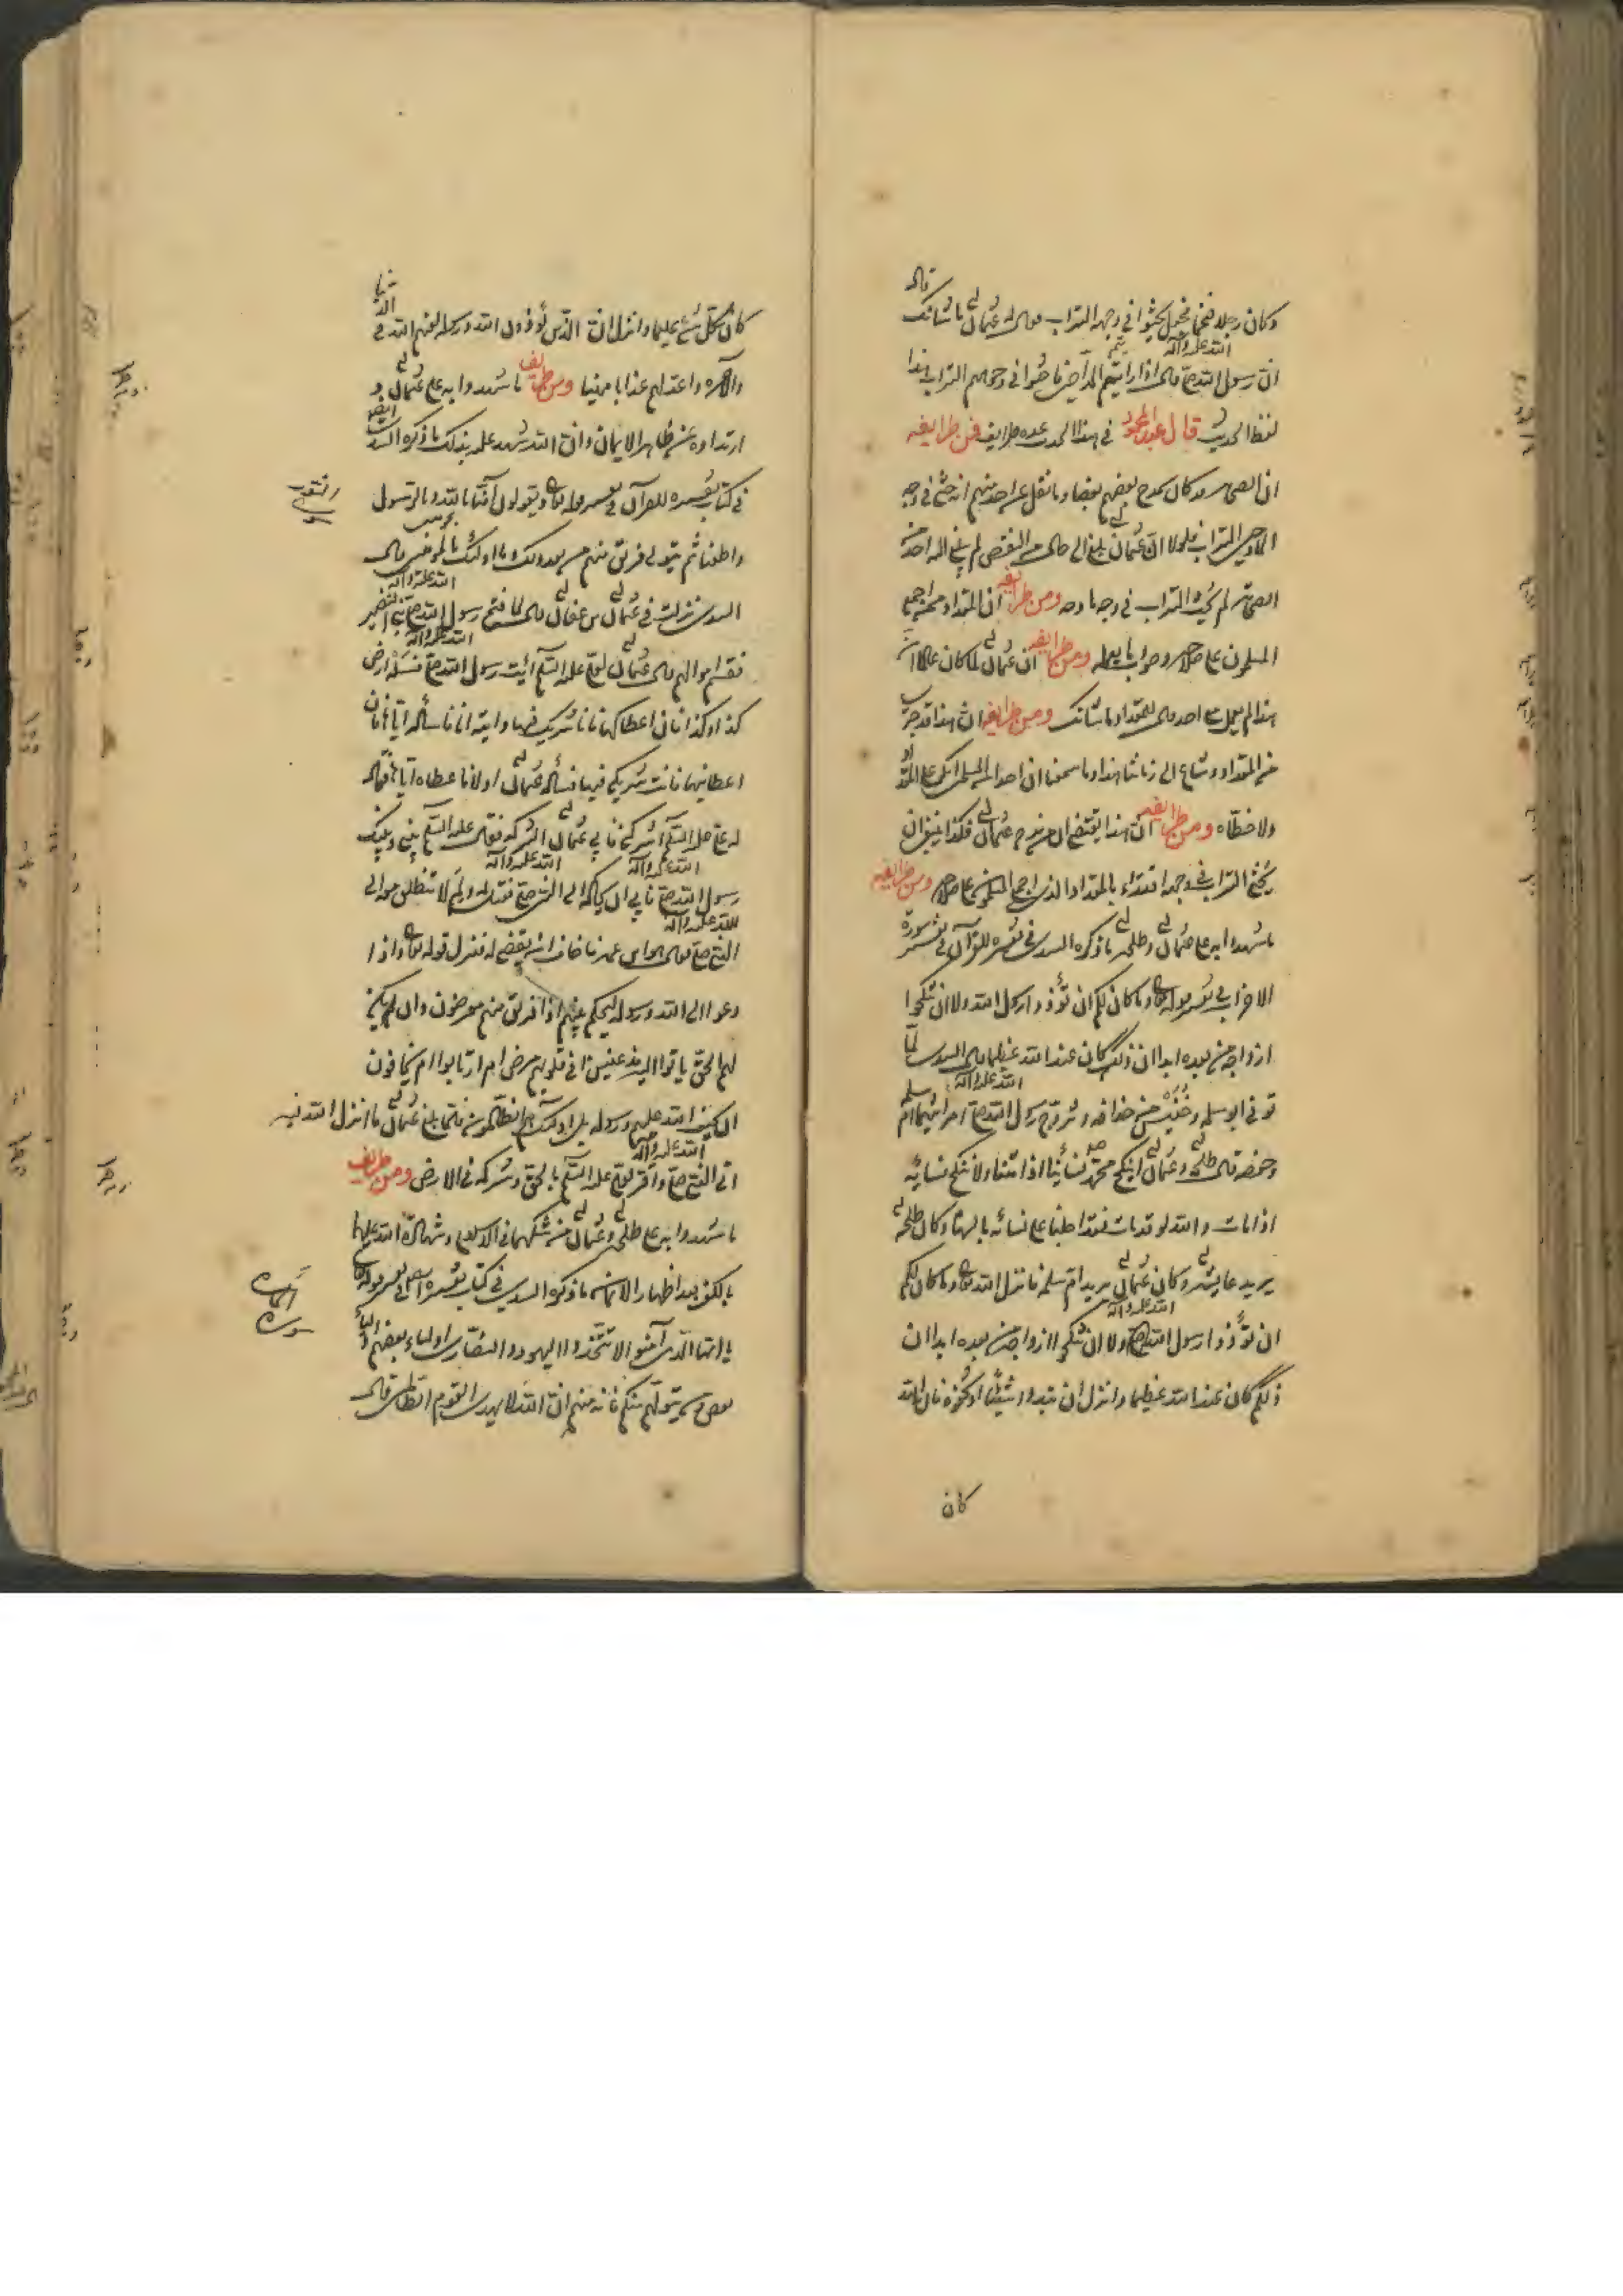 وكان رجلا ضخما فجعل يحثوا في وجهه التراب فقال له عثمان ما شانك قال
ان رسول الله صلى الله عليه وآله قال اذا رايتم المداحين فاحثوا في وجوههم التراب هذا
لفظ الحديث قال عبد المحمود في هذا الحديث عدة طرايف فمن طرايفه
ان الصحابة قد كان يمدح بعضهم بعضا وما نقل عن احد منهم انه حثى في وجه
المادحين التراب فلولا ان عثمان بلغ الى حال من النقص لم يبلغ اليه احد من
الصحابة لم يحث التراب في وجه مادحه ومن طرايفه ان المقداد ممن اجمع
المسلمون على صلاحه وصواب ما يعمله ومن طرايفه ان عثمان لما كان عالما ان
هذا لم يعمل مع احد قال للمقداد ما شانك ومن طرايفه ان هذا قد جرى
من المقداد وشاع الى زماننا هذا وما سمعنا ان احدا من المسلمين انكر على المقداد
ولا خطاه ومن طرايفه ان هذا يقتضي ان من مدح عثمان فكذا ينبغي ان
يحثى التراب في وجهه اقتداء بالمقداد الذي اجمع المسلمون على صلاحه ومن طرايفه
ما شهدوا به على عثمان وطلحة ما ذكره السدي في تفسيره للقرآن في تفسير سورة
الاحزاب في تفسير قوله تعالى وما كان لكم ان تؤذوا رسول الله ولا ان تنكحوا
ازواجه من بعده ابدا ان ذلكم كان عند الله عظيما قال السدي لما
توفي ابو سلمه وخنيس بن حذافه وتزوج رسول الله صلى الله عليه وآله امراتيهما ام سلمه
وحفصه قال طلحة وعثمان اينكح محمد نسائنا اذا متنا ولا ننكح نسائه
اذا مات والله لو قد مات لقد اجلبنا على نسائه بالسهام وكان طلحة
يريد عايشه وكان عثمان يريد ام سلمه فانزل الله تعالى وما كان لكم
ان تؤذوا رسول الله ولا ان تنكحوا ازواجه من بعده ابدا ان
ذلكم كان عند الله عظيما وانزل ان تبدوا شيئا او تخفوه فان الله
كان
كان بكل شئ عليما وانزل ان الذين يؤذون الله ورسوله لعنهم الله في الدنيا
والآخرة واعد لهم عذابا مهينا ومن طرايف ما شهدوا به على عثمان و
ارتداده عن ظاهر الايمان وان الله شهد عليه بذلك ما ذكره السدي ايضا
في كتاب تفسيره للقرآن في تفسير قوله تعالى ويقولون آمنا بالله وبالرسول
سورة النور
واطعنا ثم يتولى فريق منهم من بعد ذلك وما اولئك بالمؤمنين قال
السدي نزلت في عثمان بن عفان قال لما فتح رسول الله صلى الله عليه وآله بني النضير
فقسم اموالهم قال عثمان لعلي عليه السلام ايت رسول الله صلى الله عليه وآله فسله ارض
كذا وكذا فان اعطاكها فانا شريكك فيها وآتيه انا فاساله اياها فان
اعطانيها فانت شريكي فيها فساله عثمان اولا فاعطاه اياها فقال
له علي عليه السلام اشركني فابى عثمان الشركة فقال عليه السلام بيني وبينك
رسول الله صلى الله عليه وآله فابى ان يحاكمه الى النبي صلى الله عليه وآله فقيل له لم لا تنطلق معه الى
النبي صلى الله عليه وآله فقال هو ابن عمه فاخاف ان يقضي له فنزل قوله تعالى واذا
دعوا الى الله ورسوله ليحكم بينهم اذا فريق منهم معرضون وان يكن
لهم الحق ياتوا اليه مذعنين افي قلوبهم مرض ام ارتابوا ام يخافون
ان يحيف الله عليهم ورسوله بل اولئك هم الظالمون فلما بلغ عثمان ما انزل الله فيه
اتى النبي صلى الله عليه وآله واقر لعلي عليه السلام بالحق وشركه في الارض ومن طرايف
ما شهدوا به على طلحة وعثمان من شكهما في الاسلام وشهادة الله عليهما
بالكفر بعد اظهار الايمان ما ذكره السدي في كتاب تفسيره ايضا في تفسير قوله تعالى
سورة المائدة
يا ايها الذين آمنوا لا تتخذوا اليهود والنصارى اولياء بعضهم اولياء
بعض ومن يتولهم منكم فانه منهم ان الله لا يهدي القوم الظالمين قال